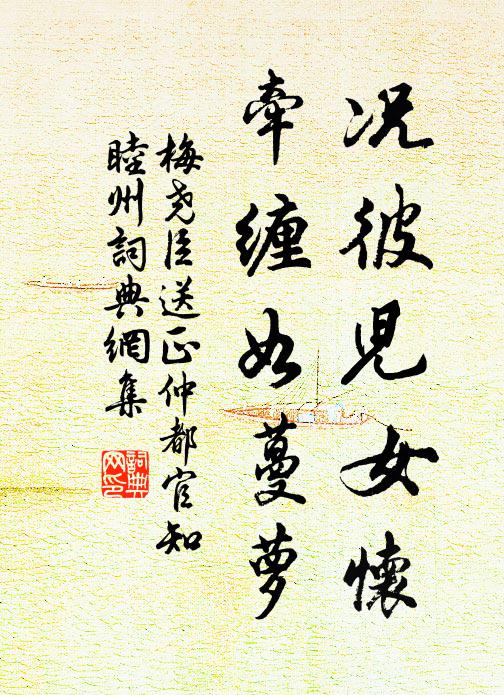 况彼児女懷
牽缠如蔓萝
梅尧臣送正仲都官知
睦州詞典網集
詞典
网印